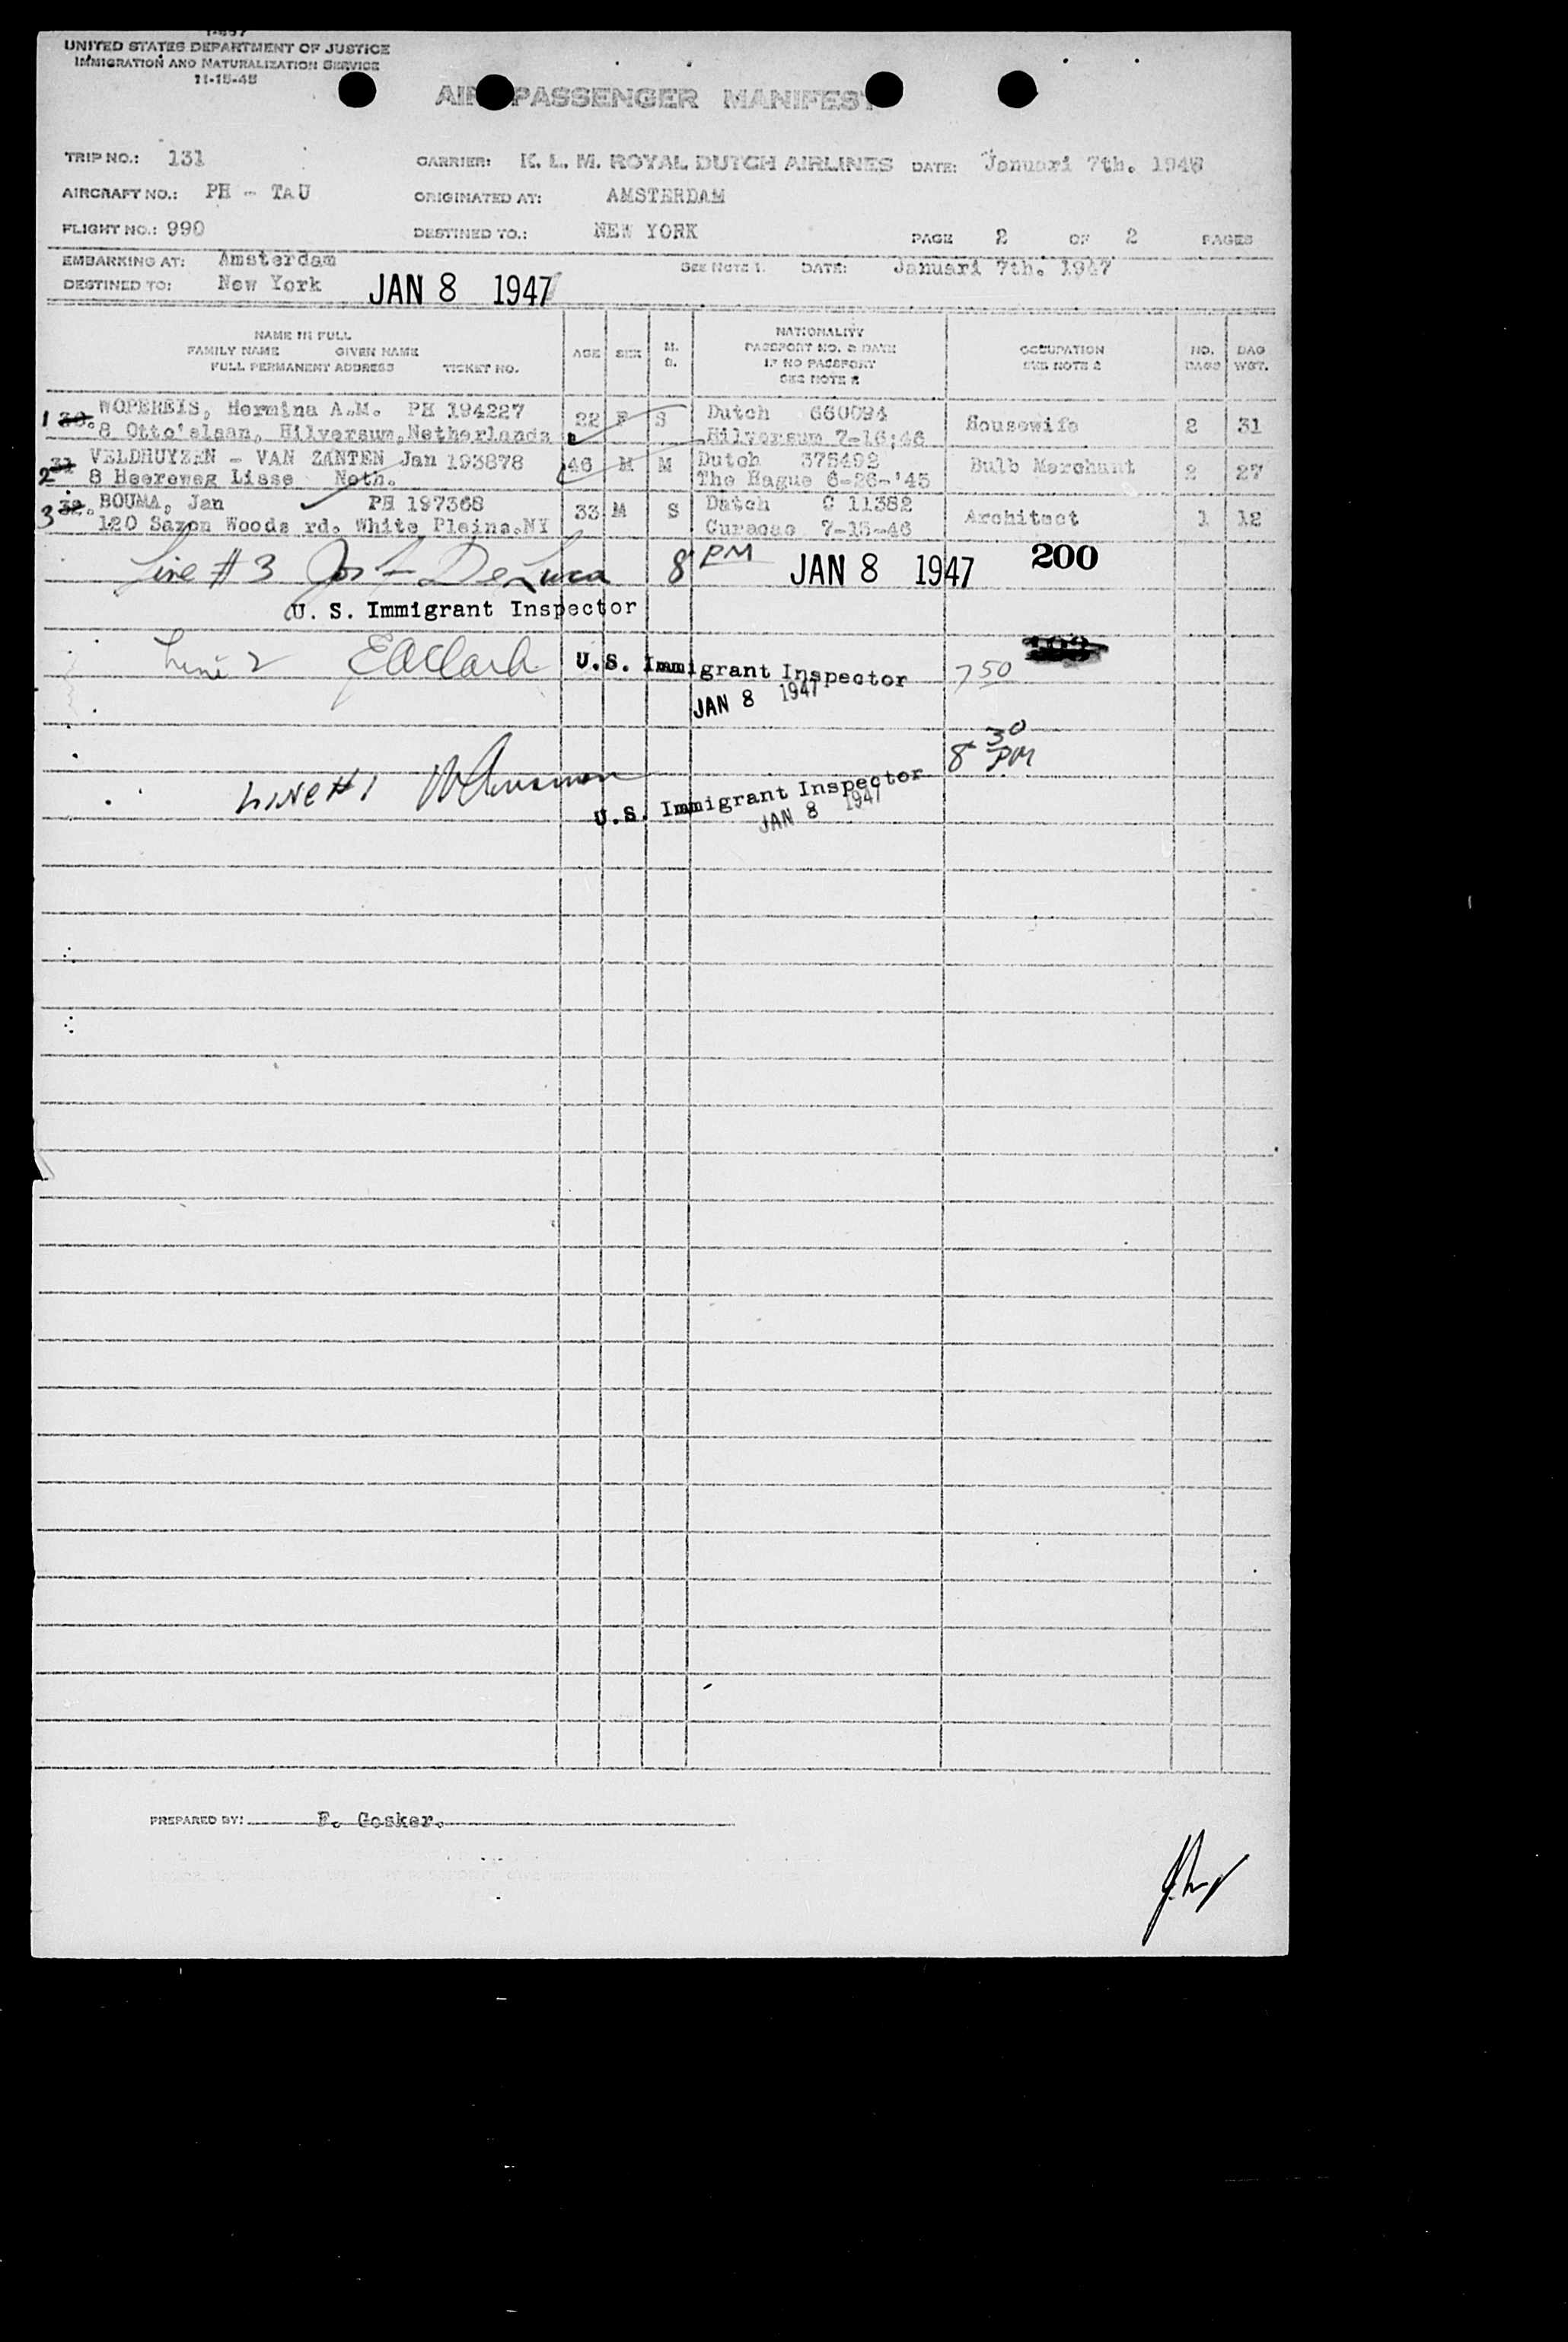 I-557
UNITED STATES DEPARTMENT OF JUSTICE
IMMIGRATION AND NATURALIZATION SERVICE
11-15-45
AIR PASSENGER MANIFEST
TRIP NO.: 131 CARRIER: K. L. M. ROYAL DUTCH AIRLINES DATE: Januari 7th. 194
AIRCRAFT NO.: PH - TAU ORIGINATED AT: AMSTERDAM
FLIGHT NO.: 990 DESTINED TO.: NEW YORK PAGE 2 OF 2 PAGES
EMBARKING AT: Amsterdam SEE NOTE 1. DATE: Januari 7th. 1947
DESTINED TO: New York JAN 8 1947
NAME IN FULL
FAMILY NAME GIVEN NAME
FULL PERMANENT ADDRESS TICKET NO.
AGE SEX M. S.
NATIONALITY
PASSPORT NO. & DATE
IF NO PASSPORT
SEE NOTE 2
OCCUPATION
SEE NOTE 2
NO. BAGS
BAG WGT.
1 30. WOPEREIS, Hermina A.M. PH 194227 22 F S Dutch 660094 Housewife 2 31
8 Otto'slaan, Hilversum, Netherlands Hilversum 7-16;46
2 31 VELDHUYZEN - VAN ZANTEN Jan 193878 46 M M Dutch 375492 Bulb Merchant 2 27
8 Heereweg Lisse Neth. The Hague 6-26-'45
3 32. BOUMA, Jan PH 197368 33 M S Dutch C 11382 Architect 1 12
120 Saxon Woods rd. White Plains.NY Curacao 7-15-46
Line #3 Jos F DeLuca 8 PM JAN 8 1947 200
U. S. Immigrant Inspector
Line 2 EAClark U.S. Immigrant Inspector 7 50
JAN 8 1947
8 30 PM
LINE #1 U.S. Immigrant Inspector
JAN 8 1947
PREPARED BY: F. Gosker.